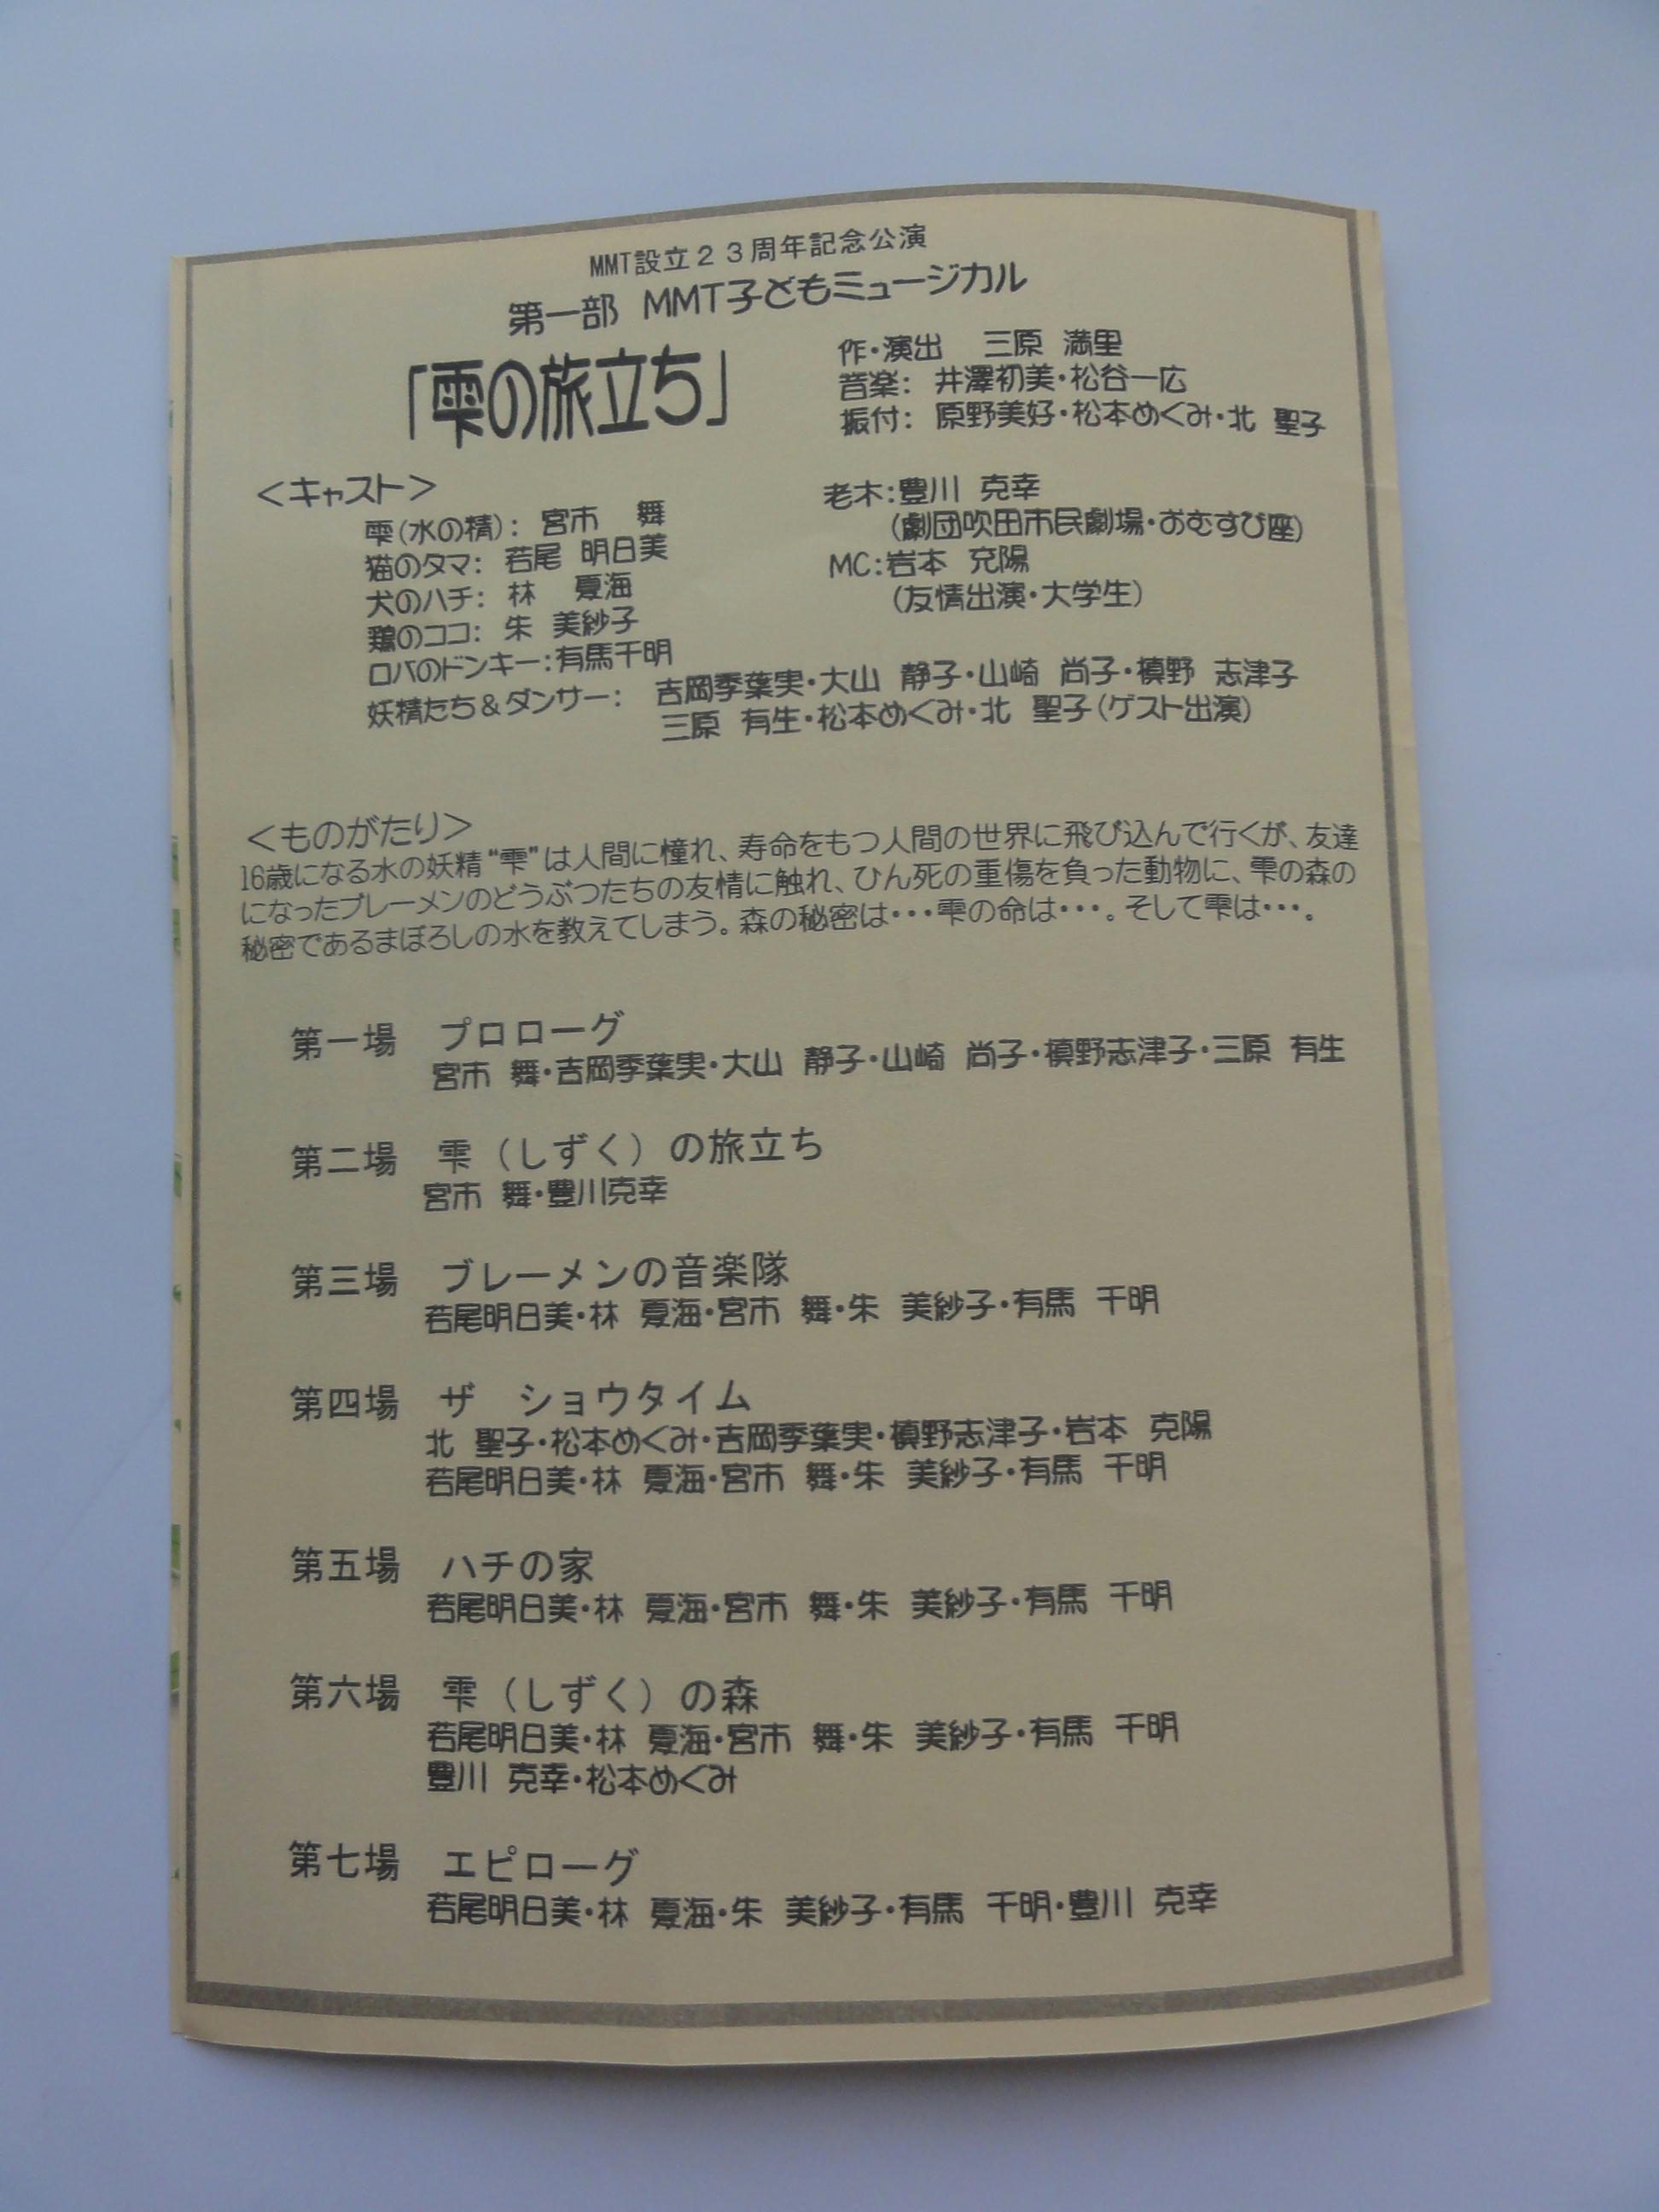 MMT設立２３周年記念公演
第一部 MMT子どもミュージカル
「雫の旅立ち」
作・演出 三原 満里
音楽: 井澤初美・松谷一広
振付: 原野美好・松本めぐみ・北 聖子
＜キャスト＞
雫(水の精): 宮市 舞
猫のタマ: 若尾 明日美
犬のハチ: 林 夏海
鶏のココ: 朱 美紗子
ロバのドンキー:有馬千明
老木:豊川 克幸
(劇団吹田市民劇場・おむすび座)
MC:岩本 克陽
(友情出演・大学生)
妖精たち＆ダンサー: 吉岡季葉実・大山 静子・山崎 尚子・槙野 志津子
三原 有生・松本めぐみ・北 聖子(ゲスト出演)
＜ものがたり＞
16歳になる水の妖精“雫”は人間に憧れ、寿命をもつ人間の世界に飛び込んで行くが、友達
になったブレーメンのどうぶつたちの友情に触れ、ひん死の重傷を負った動物に、雫の森の
秘密であるまぼろしの水を教えてしまう。森の秘密は・・・雫の命は・・・。そして雫は・・・。
第一場 プロローグ
宮市 舞・吉岡季葉実・大山 静子・山崎 尚子・槙野志津子・三原 有生
第二場 雫（しずく）の旅立ち
宮市 舞・豊川克幸
第三場 ブレーメンの音楽隊
若尾明日美・林 夏海・宮市 舞・朱 美紗子・有馬 千明
第四場 ザ ショウタイム
北 聖子・松本めぐみ・吉岡季葉実・槙野志津子・岩本 克陽
若尾明日美・林 夏海・宮市 舞・朱 美紗子・有馬 千明
第五場 ハチの家
若尾明日美・林 夏海・宮市 舞・朱 美紗子・有馬 千明
第六場 雫（しずく）の森
若尾明日美・林 夏海・宮市 舞・朱 美紗子・有馬 千明
豊川 克幸・松本めぐみ
第七場 エピローグ
若尾明日美・林 夏海・朱 美紗子・有馬 千明・豊川 克幸